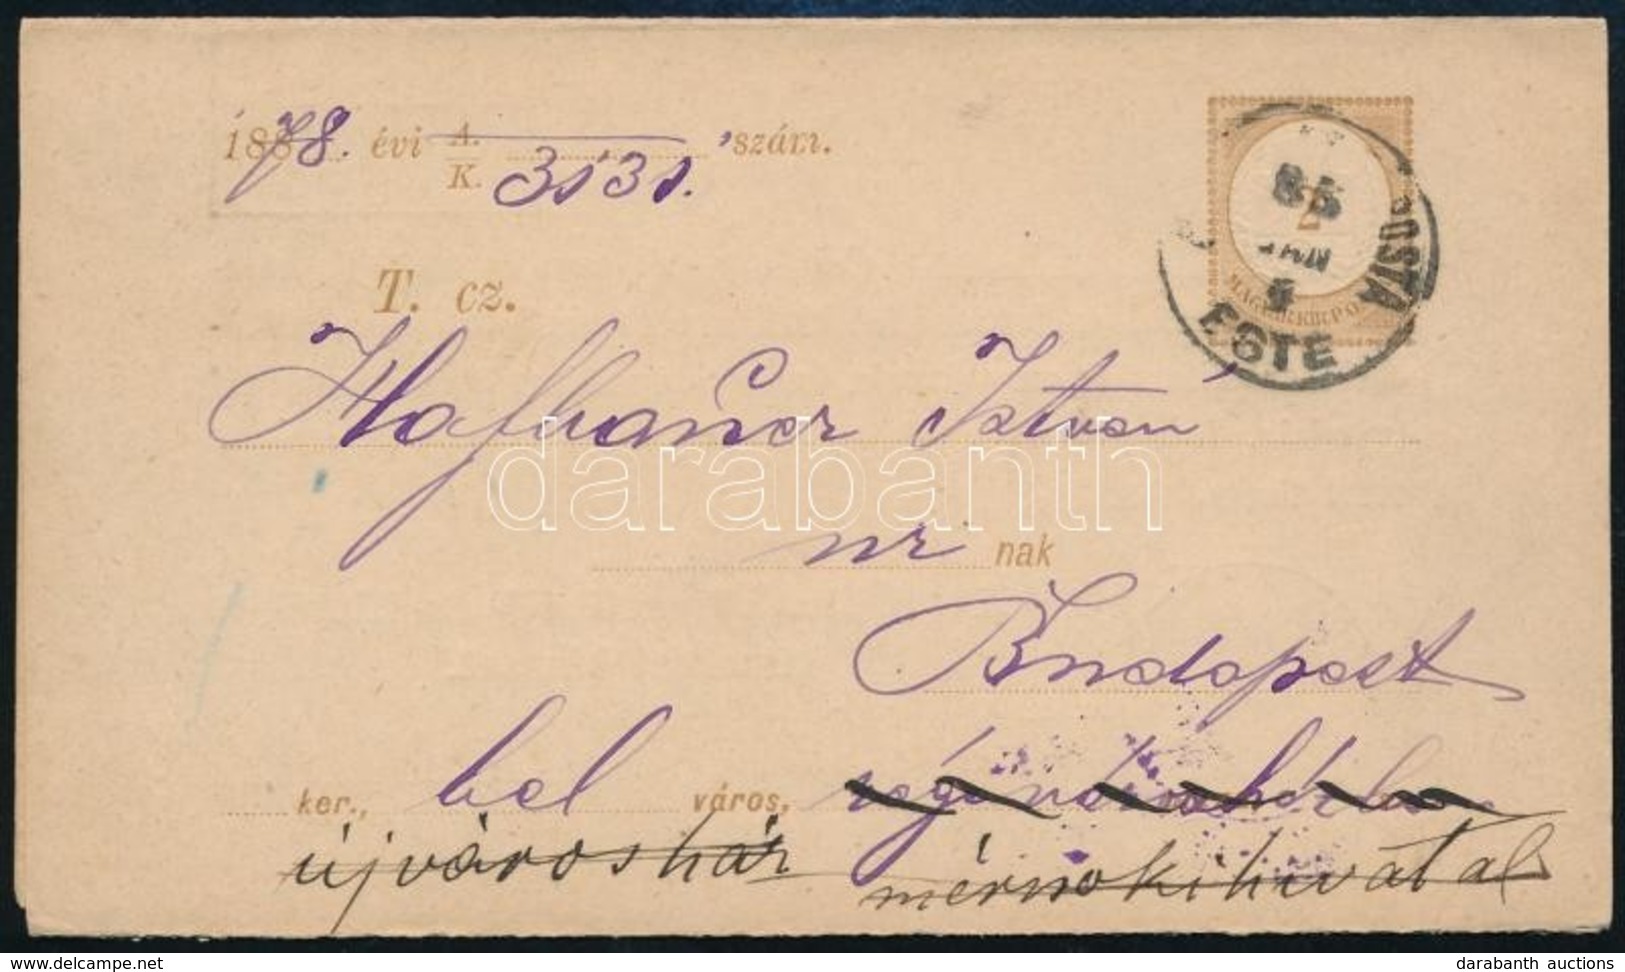 1888 78. évi A. K. 3531. szám.
T. cz.
István
úr nak
Budapest
ker., bel város, régi városházba
újvárosház mérnoki hivatal
2
MAGYAR KIR. POSTA
85
5
ESTE
POSTA
darabanth
darabanth auctions
delcampe.net